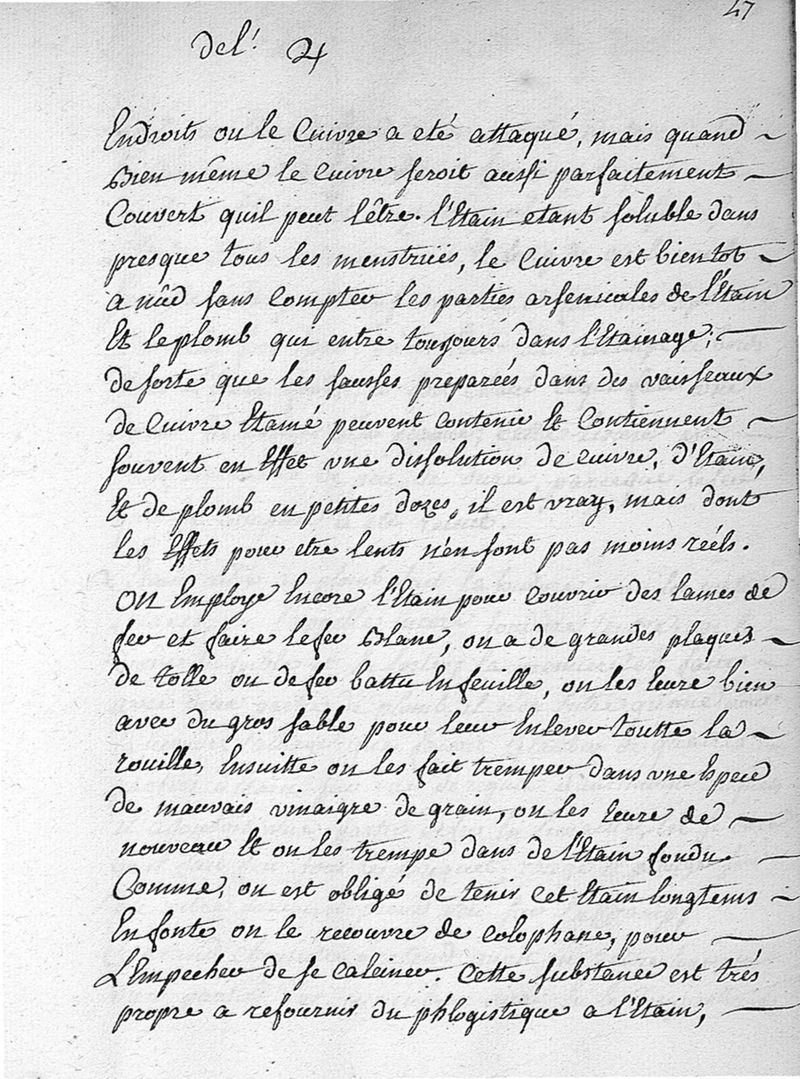 47
del' ♃
Endroits ou le Cuivre a eté attaqué, mais quand
Bien même le Cuivre seroit aussi parfaitement
Couvert quil peut lêtre. l'Etain etant soluble dans
presque tous les menstrües, le Cuivre est bientot
a nûd sans compter les parties arsenicales de l'Etain
Et le plomb qui entre toujours dans l'Etamage;
de sorte que les sausses preparées dans des vaisseaux
de Cuivre Etamé peuvent contenir Et contiennent
souvent en Effet vne dissolution de cuivre, d'Etain,
Et de plomb en petites dozes, il est vray, mais dont
les Effets pour etre lents n'en sont pas moins réels.
on Employe Encore l'Etain pour couvrir des lames de
fer et faire le fer Blanc, on a de grandes plaques
de tolle ou de fer battu En feuille, on les Ecure bien
avec du gros sable pour leur Enlever toutte la
rouille, Ensuitte on les fait tremper dans vne Espece
de mauvais vinaigre de grain, on les Ecure de
nouveau Et on les trempe dans de l'Etain fondu.
Comme, on est obligé de tenir cet Etain longtems
En fonte on le recouvre de colophane, pour
L'Empecher de se calciner. Cette substance est trés
propre a refournir du phlogistique a l'Etain,